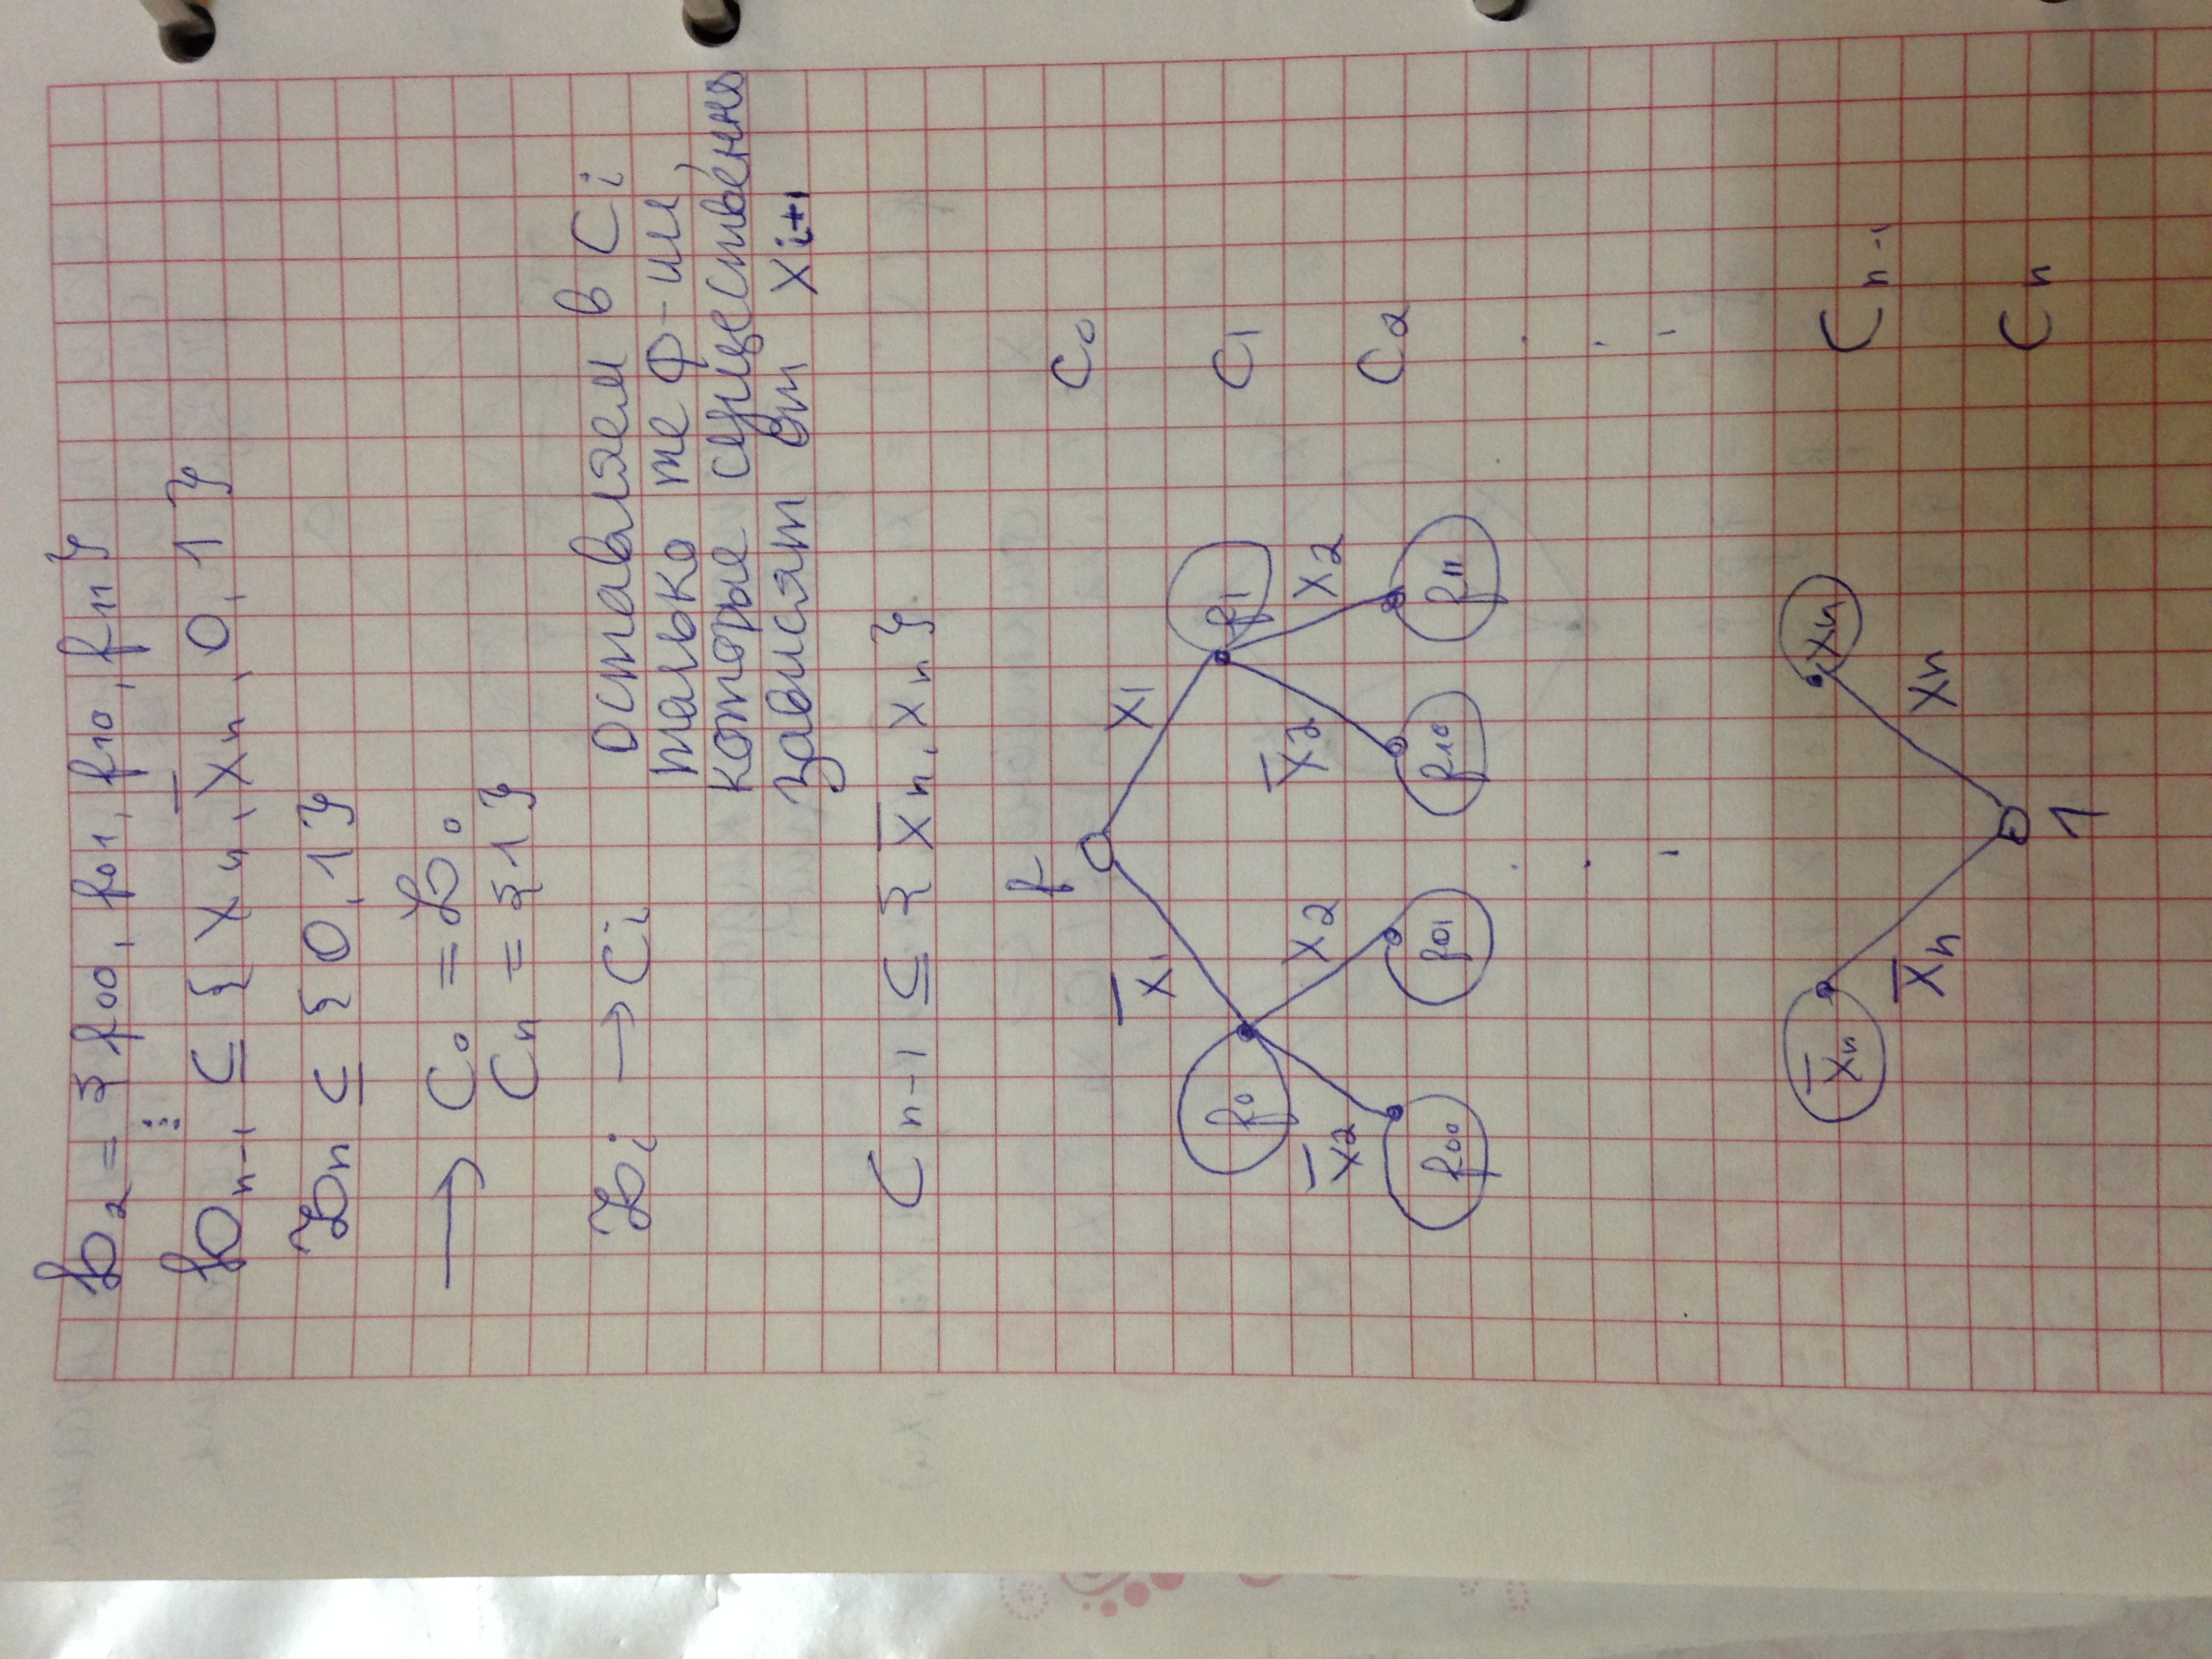 ℒ₂ = {f₀₀, f₀₁, f₁₀, f₁₁}
⋮
ℒₙ₋₁ ⊆ {xₙ, x̄ₙ, 0, 1}
ℒₙ ⊆ {0, 1}
→ C₀ = ℒ₀
Cₙ = {1}
ℒᵢ → Cᵢ оставляем в Cᵢ
только те ф-ии,
которые существенно
зависят от xᵢ₊₁
Cₙ₋₁ ⊆ {x̄ₙ, xₙ}
f C₀
x̄₁ x₁
f₀ f₁ C₁
x̄₂ x₂ x̄₂ x₂
f₀₀ f₀₁ f₁₀ f₁₁ C₂
. . .
x̄ₙ xₙ Cₙ₋₁
x̄ₙ xₙ
1 Cₙ